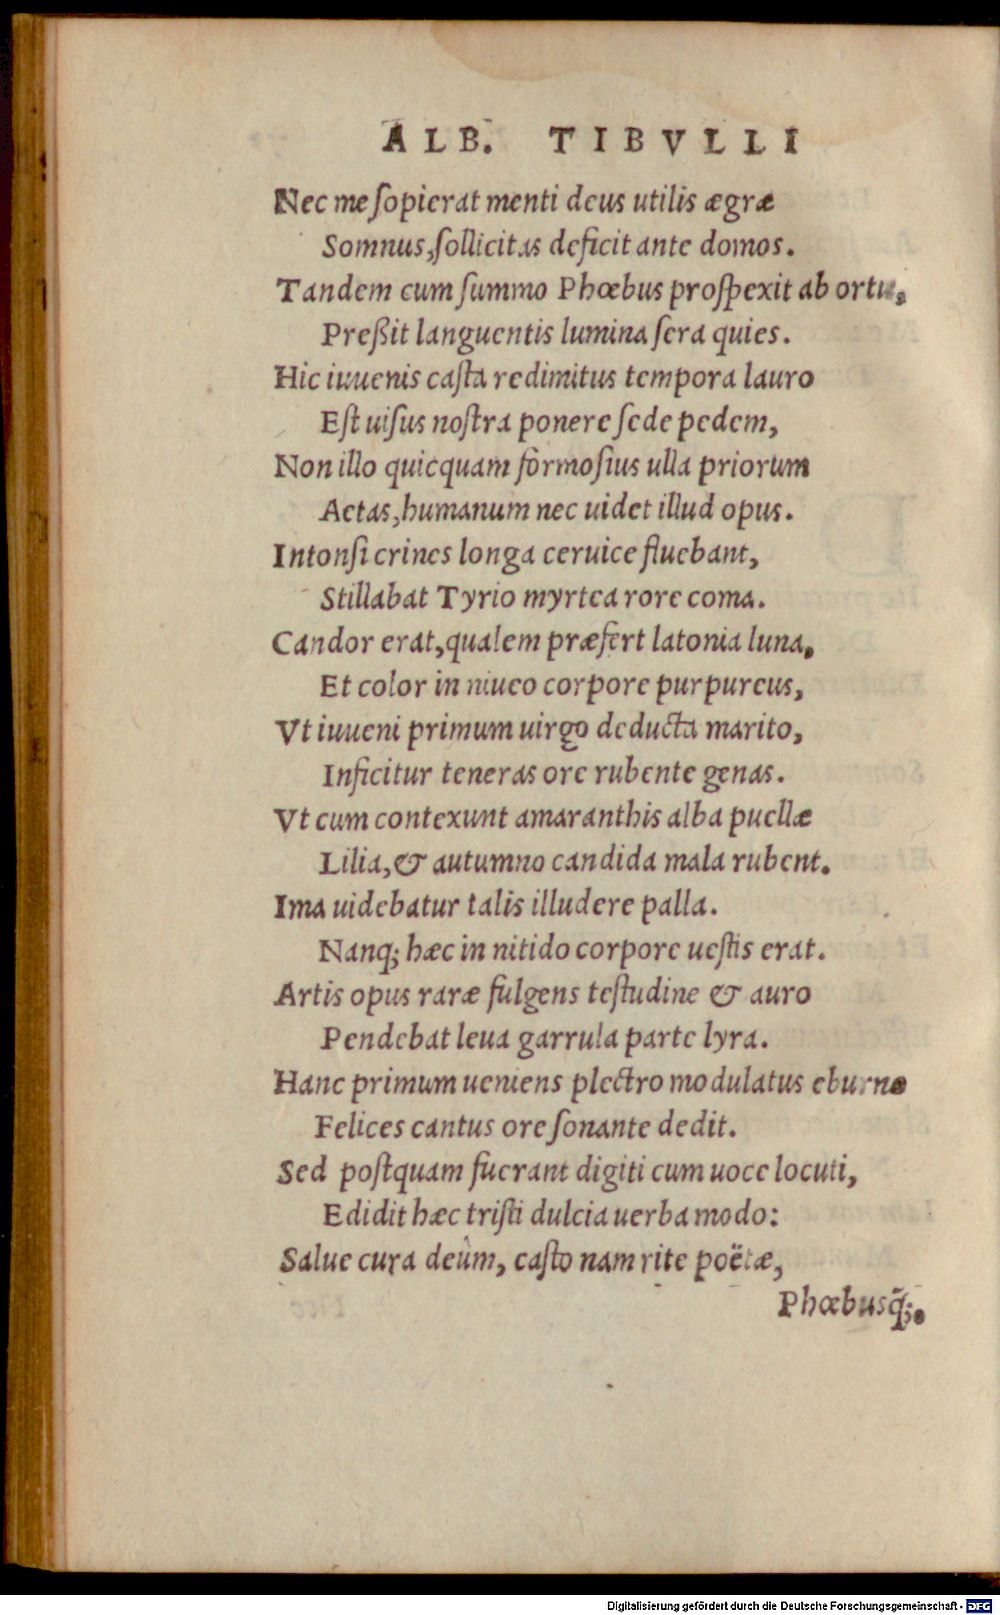 ALB. TIBVLLI
Nec me ſopierat menti deus utilis ægræ
Somnus, ſollicitas deficit ante domos.
Tandem cum ſummo Phœbus proſpexit ab ortu,
Preßit languentis lumina ſera quies.
Hic iuuenis caſta redimitus tempora lauro
Eſt uiſus noſtra ponere ſede pedem,
Non illo quicquam formoſius ulla priorum
Aetas, humanum nec uidet illud opus.
Intonſi crines longa ceruice fluebant,
Stillabat Tyrio myrtea rore coma.
Candor erat, qualem præfert latonia luna,
Et color in niueo corpore purpureus,
Vt iuueni primum uirgo deducta marito,
Inficitur teneras ore rubente genas.
Vt cum contexunt amaranthis alba puellæ
Lilia, & autumno candida mala rubent.
Ima uidebatur talis illudere palla.
Nanq; hæc in nitido corpore ueſtis erat.
Artis opus raræ fulgens teſtudine & auro
Pendebat leua garrula parte lyra.
Hanc primum ueniens plectro modulatus eburno
Felices cantus ore ſonante dedit.
Sed poſtquam fuerant digiti cum uoce locuti,
Edidit hæc triſti dulcia uerba modo:
Salue cura deûm, caſto nam rite poëtæ,
Phœbusq́;.
Digitalisierung gefördert durch die Deutsche Forschungsgemeinschaft - DFG